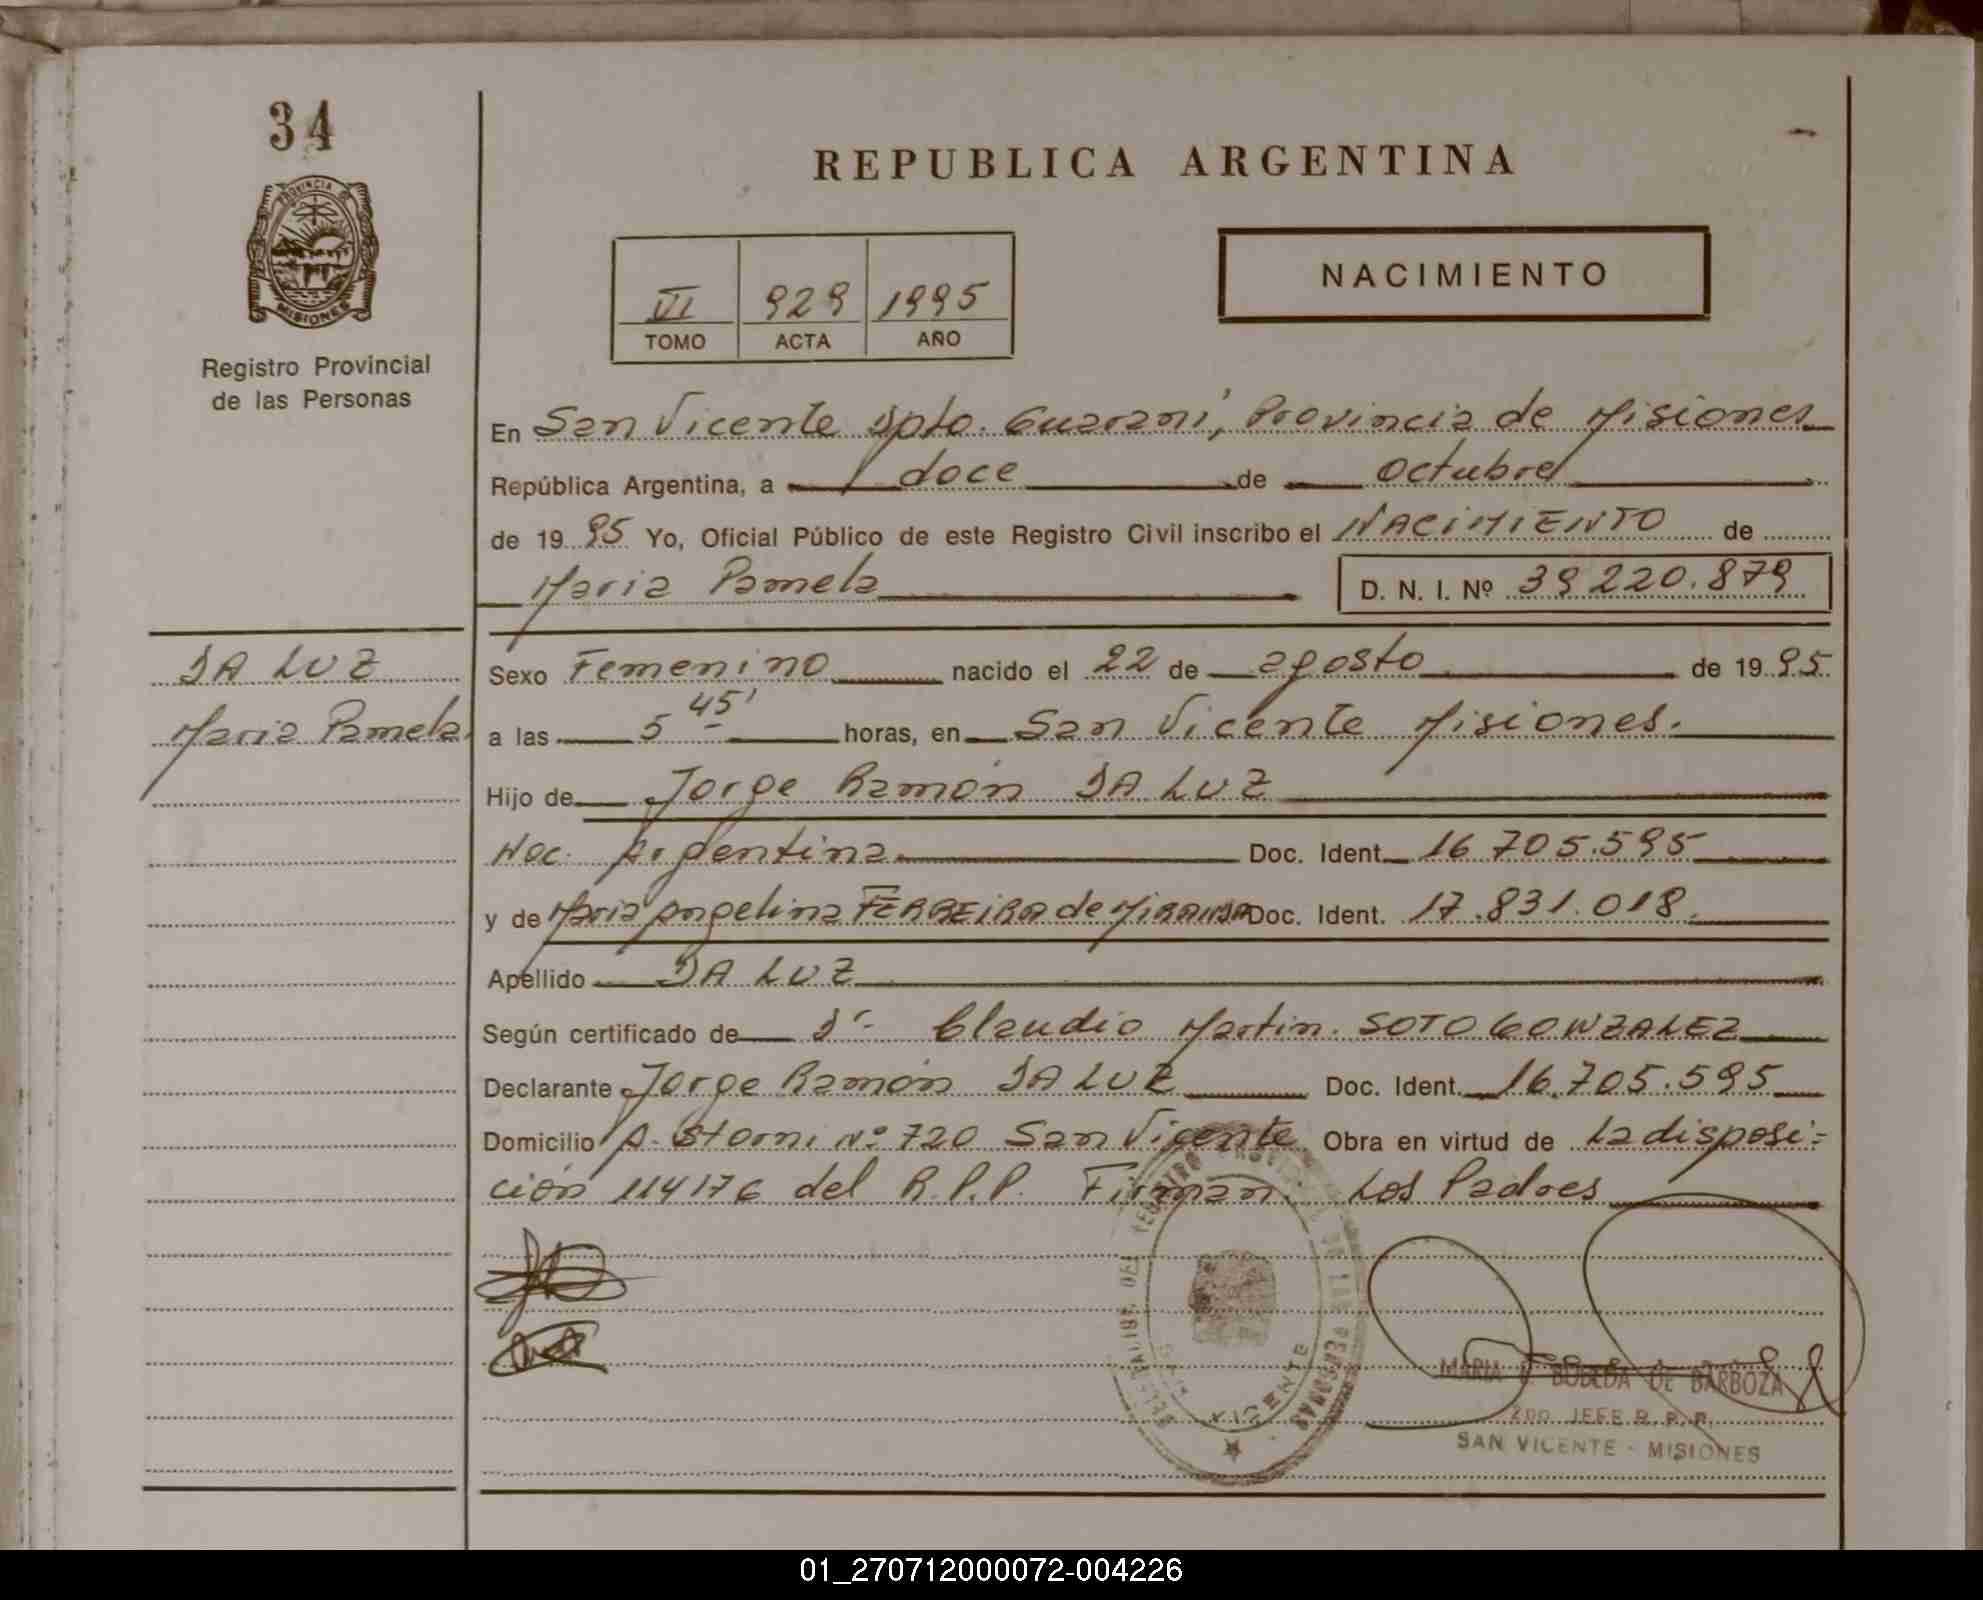 34
PROVINCIA DE
MISIONES
Registro Provincial
de las Personas
REPUBLICA ARGENTINA
VI 929 1995
TOMO ACTA AÑO
NACIMIENTO
En San Vicente Dpto. Guaraní, Provincia de Misiones
República Argentina, a doce de octubre
de 1995 Yo, Oficial Público de este Registro Civil inscribo el NACIMIENTO de
Maria Pamela D. N. I. Nº 39220.879
DA LUZ
Maria Pamela
Sexo Femenino nacido el 22 de agosto de 1995
a las 5 45' horas, en San Vicente Misiones.
Hijo de Jorge Ramón DA LUZ
Nac. Argentina Doc. Ident. 16.705.595
y de Maria Angelina FERREIRA de MIRANDA Doc. Ident. 17.831.018
Apellido DA LUZ
Según certificado de Dr. Claudio Martin SOTO GONZALEZ
Declarante Jorge Ramón DA LUZ Doc. Ident. 16.705.595
Domicilio A. Storni Nº 720 San Vicente Obra en virtud de La disposi=
ción 114176 del R.P.P. Firman. Los Padres
SAN VICENTE
MARIA BOBEDA DE BARBOZA
2DO. JEFE R. P. P.
SAN VICENTE - MISIONES
01_270712000072-004226